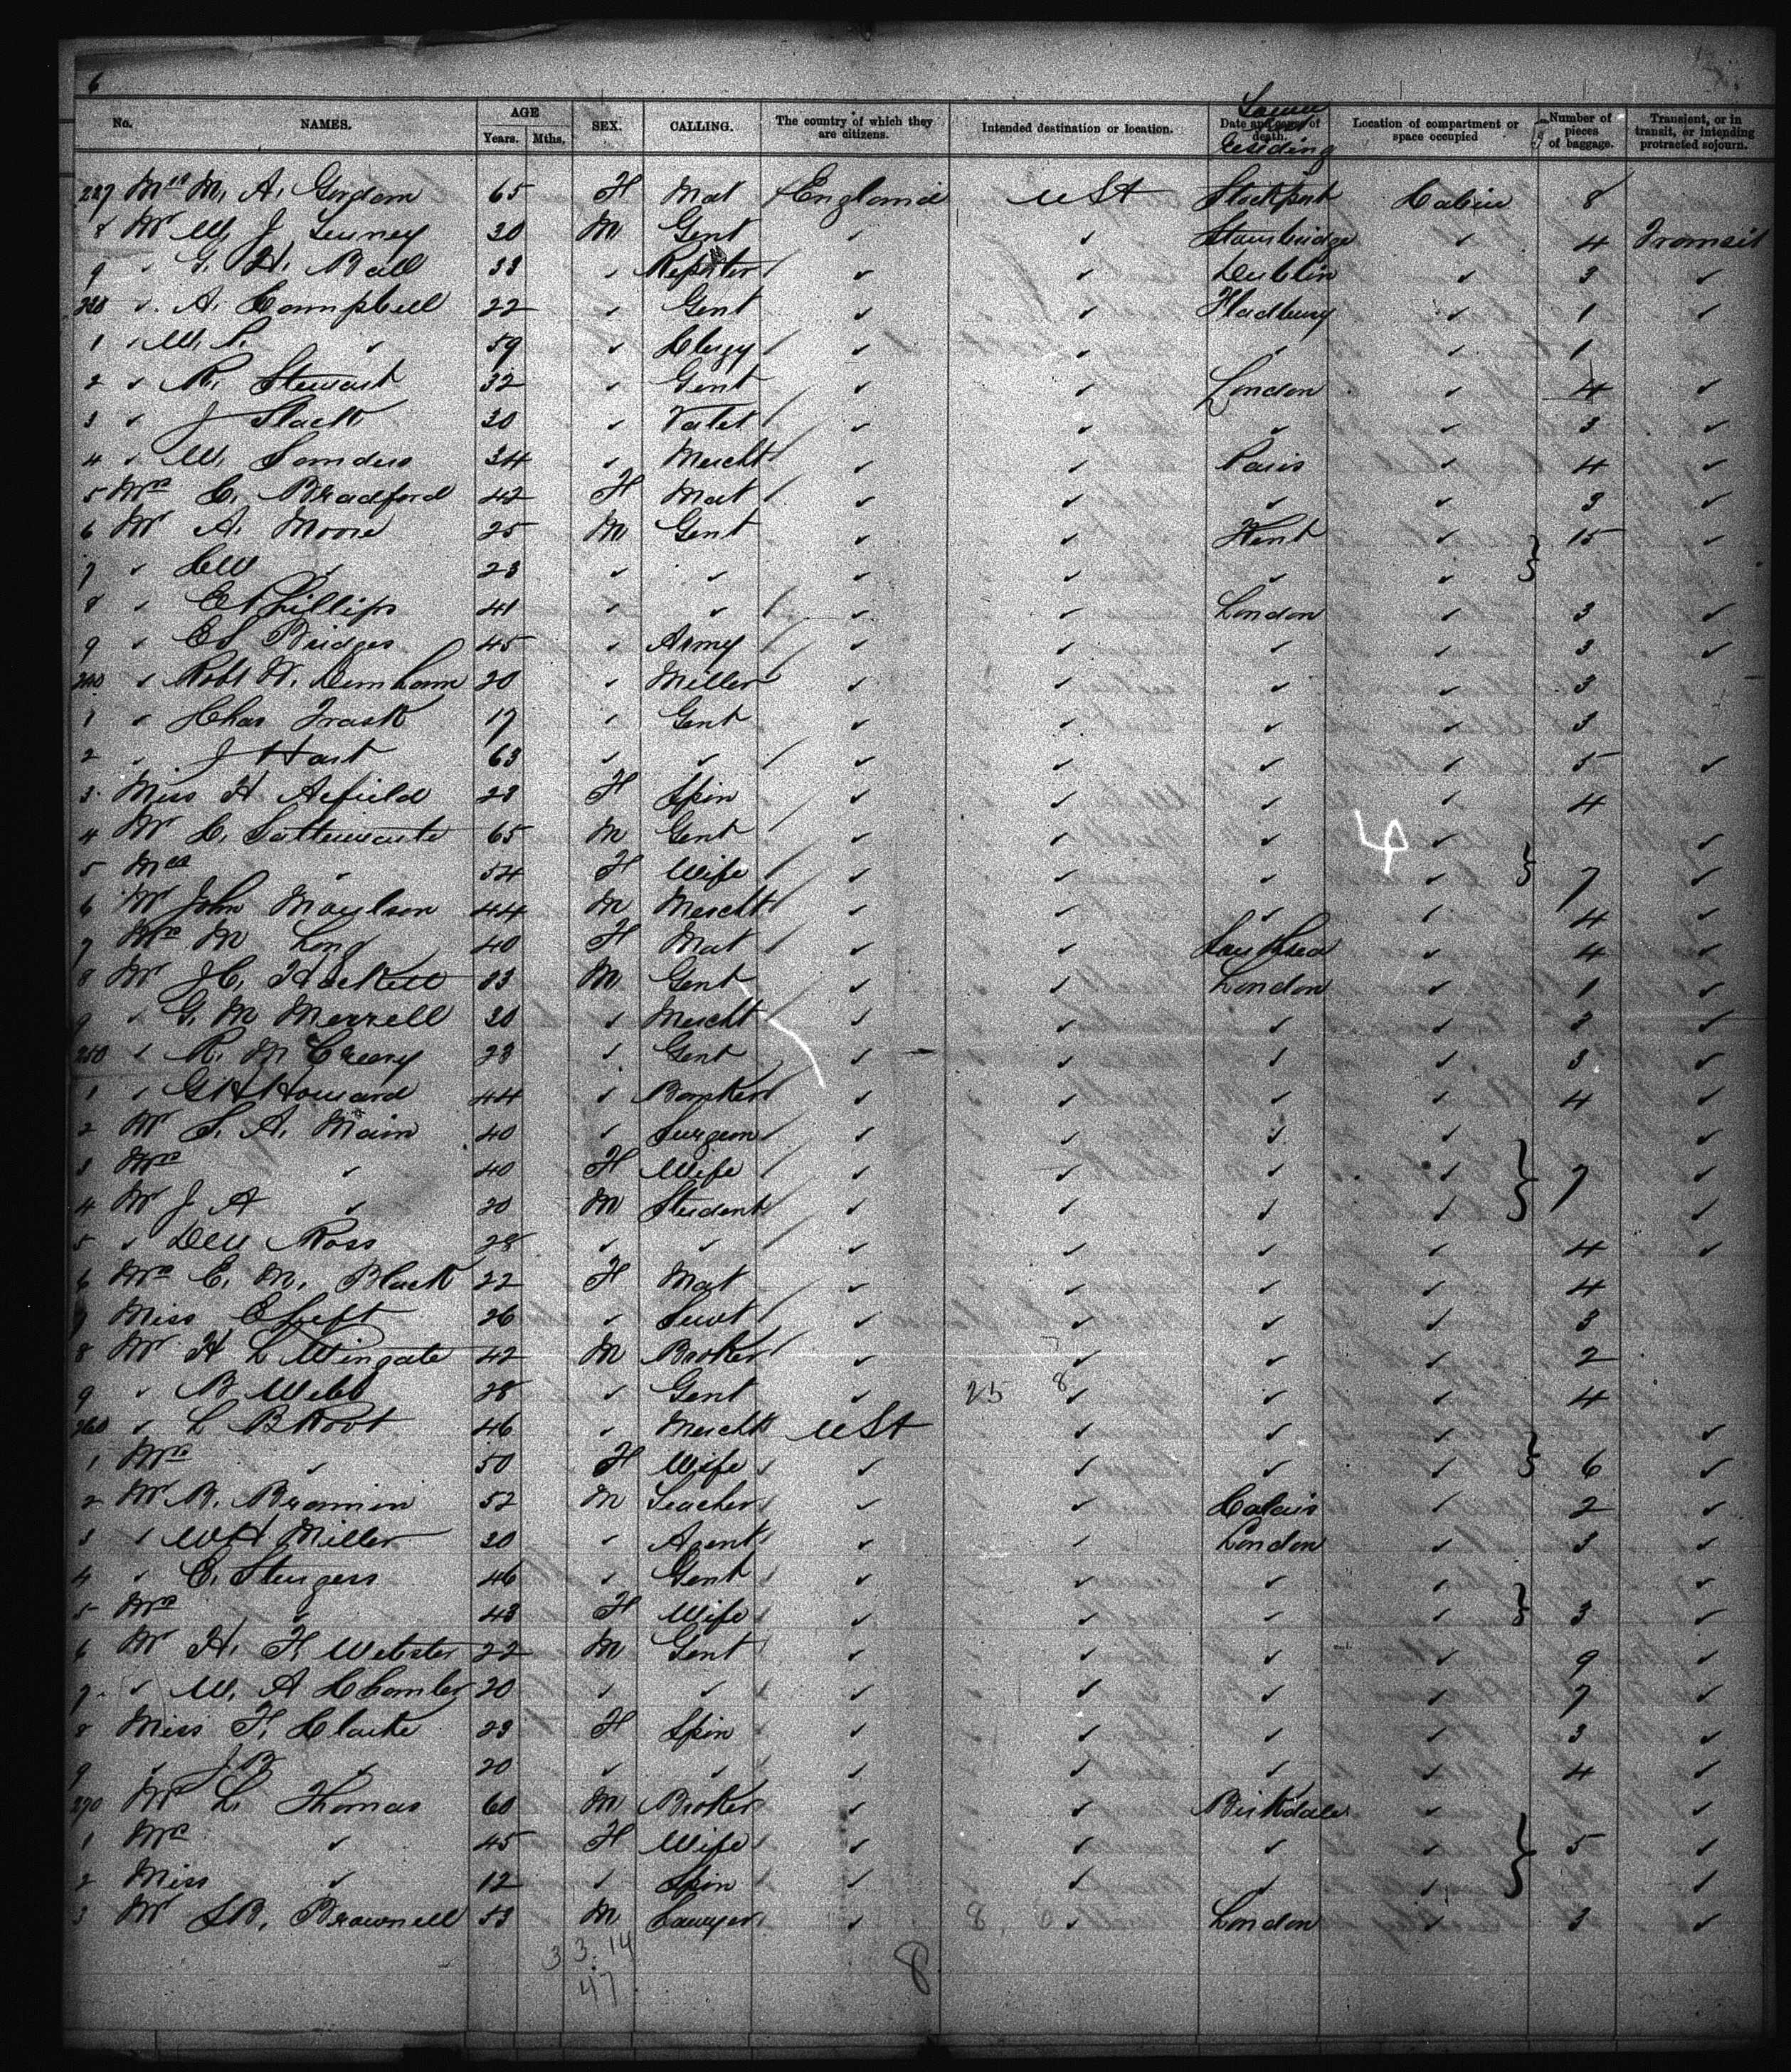 6
No. NAMES. AGE Years. Mths. SEX. CALLING. The country of which they are citizens. Intended destination or location. Date and cause of death. Location of compartment or space occupied Number of pieces of baggage. Transient, or in transit, or intending protracted sojourn.
Residing
227 Mrs M. A. Gordon 65 F Mat England USt Stockport Cabin 8
8 Mr W J 30 M Gent ✓ ✓ Stambridge ✓ 4 Transit
9 ✓ G. H. Ball 33 ✓ Reporter ✓ ✓ Dublin ✓ 3 ✓
230 ✓ A. Campbell 22 ✓ Gent ✓ ✓ Fladbury ✓ 1 ✓
1 ✓ W. ✓ 59 ✓ Clergy ✓ ✓ ✓ ✓ 1
2 ✓ R. Stewart 32 ✓ Gent ✓ ✓ London ✓ 4 ✓
3 ✓ J Slack 30 ✓ Valet ✓ ✓ ✓ ✓ 3 ✓
4 ✓ W. Sanders 34 ✓ Mercht ✓ ✓ Paris ✓ 4 ✓
5 Mrs C. Bradford 42 F Mat ✓ ✓ ✓ ✓ 3 ✓
6 Mr A. Moore 25 M Gent ✓ ✓ Kent ✓ } 15 ✓
7 ✓ CW ✓ 23 ✓ ✓ ✓ ✓ ✓ ✓
8 ✓ E Phillips 41 ✓ ✓ ✓ ✓ London ✓ 3 ✓
9 ✓ Bridges 45 ✓ Army ✓ ✓ ✓ ✓ 3 ✓
240 ✓ Robt W. Denham 20 ✓ Miller ✓ ✓ ✓ ✓ 3
1 ✓ Chas Trask 17 ✓ Gent ✓ ✓ ✓ ✓ 3
2 ✓ J Hart 63 ✓ ✓ ✓ ✓ ✓ ✓ 5 ✓
3 Miss H Afield 28 F Spin ✓ ✓ ✓ ✓ 4
4 Mr C. Satterwaite 65 M Gent ✓ ✓ ✓ ✓ ✓
5 Mrs ✓ 54 F Wife ✓ ✓ ✓ ✓ } 7 ✓
6 Mr John Moulson 44 M Mercht ✓ ✓ ✓ ✓ 4 ✓
7 Mrs M Long 40 F Mat ✓ ✓ Southsea ✓ 4 ✓
8 Mr J C. Hackett 33 M Gent ✓ ✓ London ✓ 1 ✓
9 ✓ G. M Merrell 30 ✓ Mercht ✓ ✓ ✓ ✓ 3 ✓
250 ✓ R. McCreery 28 ✓ Gent ✓ ✓ ✓ ✓ 3 ✓
1 ✓ G H Howard 44 ✓ Banker ✓ ✓ ✓ ✓ 4 ✓
2 Mr S. A. Main 40 ✓ Surgeon ✓ ✓ ✓ ✓ ✓
3 Mrs ✓ 40 F Wife ✓ ✓ ✓ ✓ } 7 ✓
4 Mr J A ✓ 20 M Student ✓ ✓ ✓ ✓ ✓
5 ✓ Ross 28 ✓ ✓ ✓ ✓ ✓ ✓ 4 ✓
6 Mrs E. M. Black 22 F Mat ✓ ✓ ✓ ✓ 4
7 Miss E Left 26 ✓ Servt ✓ ✓ ✓ ✓ 3
8 Mr H L Wingate 42 M Broker ✓ ✓ ✓ ✓ 2
9 ✓ B. Webb 28 ✓ Gent ✓ 25 8 ✓ ✓ ✓ 4
260 ✓ L B Root 46 ✓ Mercht USt ✓ ✓ ✓ ✓
1 Mrs ✓ 50 F Wife ✓ ✓ ✓ ✓ } 6 ✓
2 Mr B. Bramin 52 M Teacher ✓ ✓ Calais ✓ 2 ✓
3 ✓ W H Miller 30 ✓ Agent ✓ ✓ London ✓ 3 ✓
4 ✓ E. Sturgess 46 ✓ Gent ✓ ✓ ✓ ✓ ✓
5 Mrs ✓ 43 F Wife ✓ ✓ ✓ ✓ } 3 ✓
6 Mr H. F. Webster 22 M Gent ✓ ✓ ✓ ✓ 9 ✓
7 ✓ W. A Chanler 20 ✓ ✓ ✓ ✓ ✓ ✓ 7 ✓
8 Miss F. Clarke 23 F Spin ✓ ✓ ✓ ✓ 3 ✓
9 ✓ J B ✓ 20 ✓ ✓ ✓ ✓ ✓ ✓ 4 ✓
270 Mr L. Thomas 60 M Broker ✓ ✓ Birkdale ✓ ✓
1 Mrs ✓ 45 F Wife ✓ ✓ ✓ ✓ } 5 ✓
2 Miss ✓ 12 ✓ Spin ✓ ✓ ✓ ✓ ✓
3 Mr S B. Brownell 53 M Lawyer ✓ 8 ✓ London ✓ 3 ✓
3 3. 14
47
8